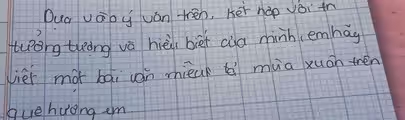 Dựa vào ý văn trên, kết hợp với trí
tưởng tượng và hiểu biết của mình, em hãy
viết một bài văn miêu tả mùa xuân trên
quê hương em